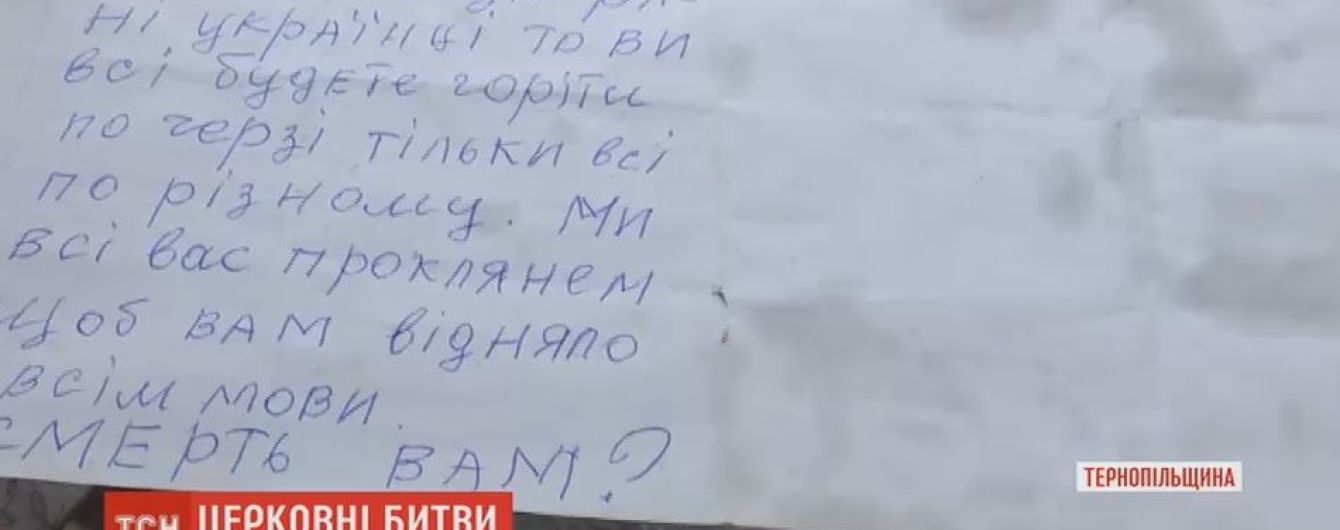 ні українці то ви
всі будете горіти
по черзі тільки всі
по різному. Ми
всі вас проклянем
Щоб вам відняло
всім мови.
СМЕРТЬ ВАМ?
ТЕРНОПІЛЬЩИНА
ТСН ЦЕРКОВНІ БИТВИ